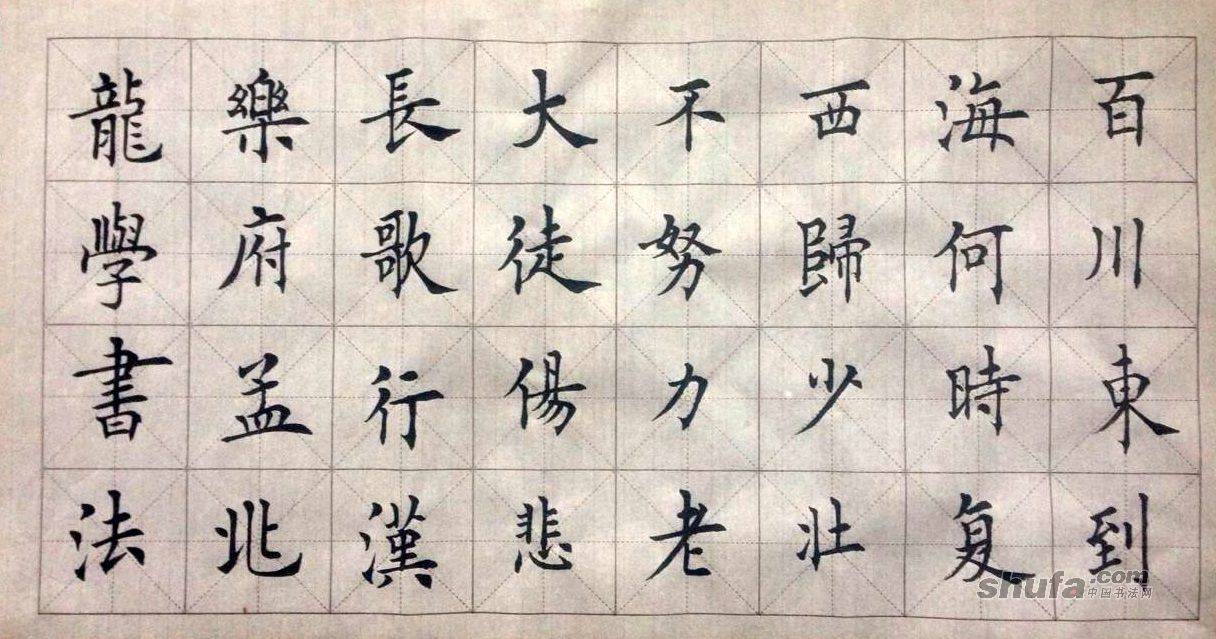 百川東到
海何時复
西歸少壮
不努力老
大徒傷悲
長歌行漢
樂府孟兆
龍學書法
shufa.com
中国书法网